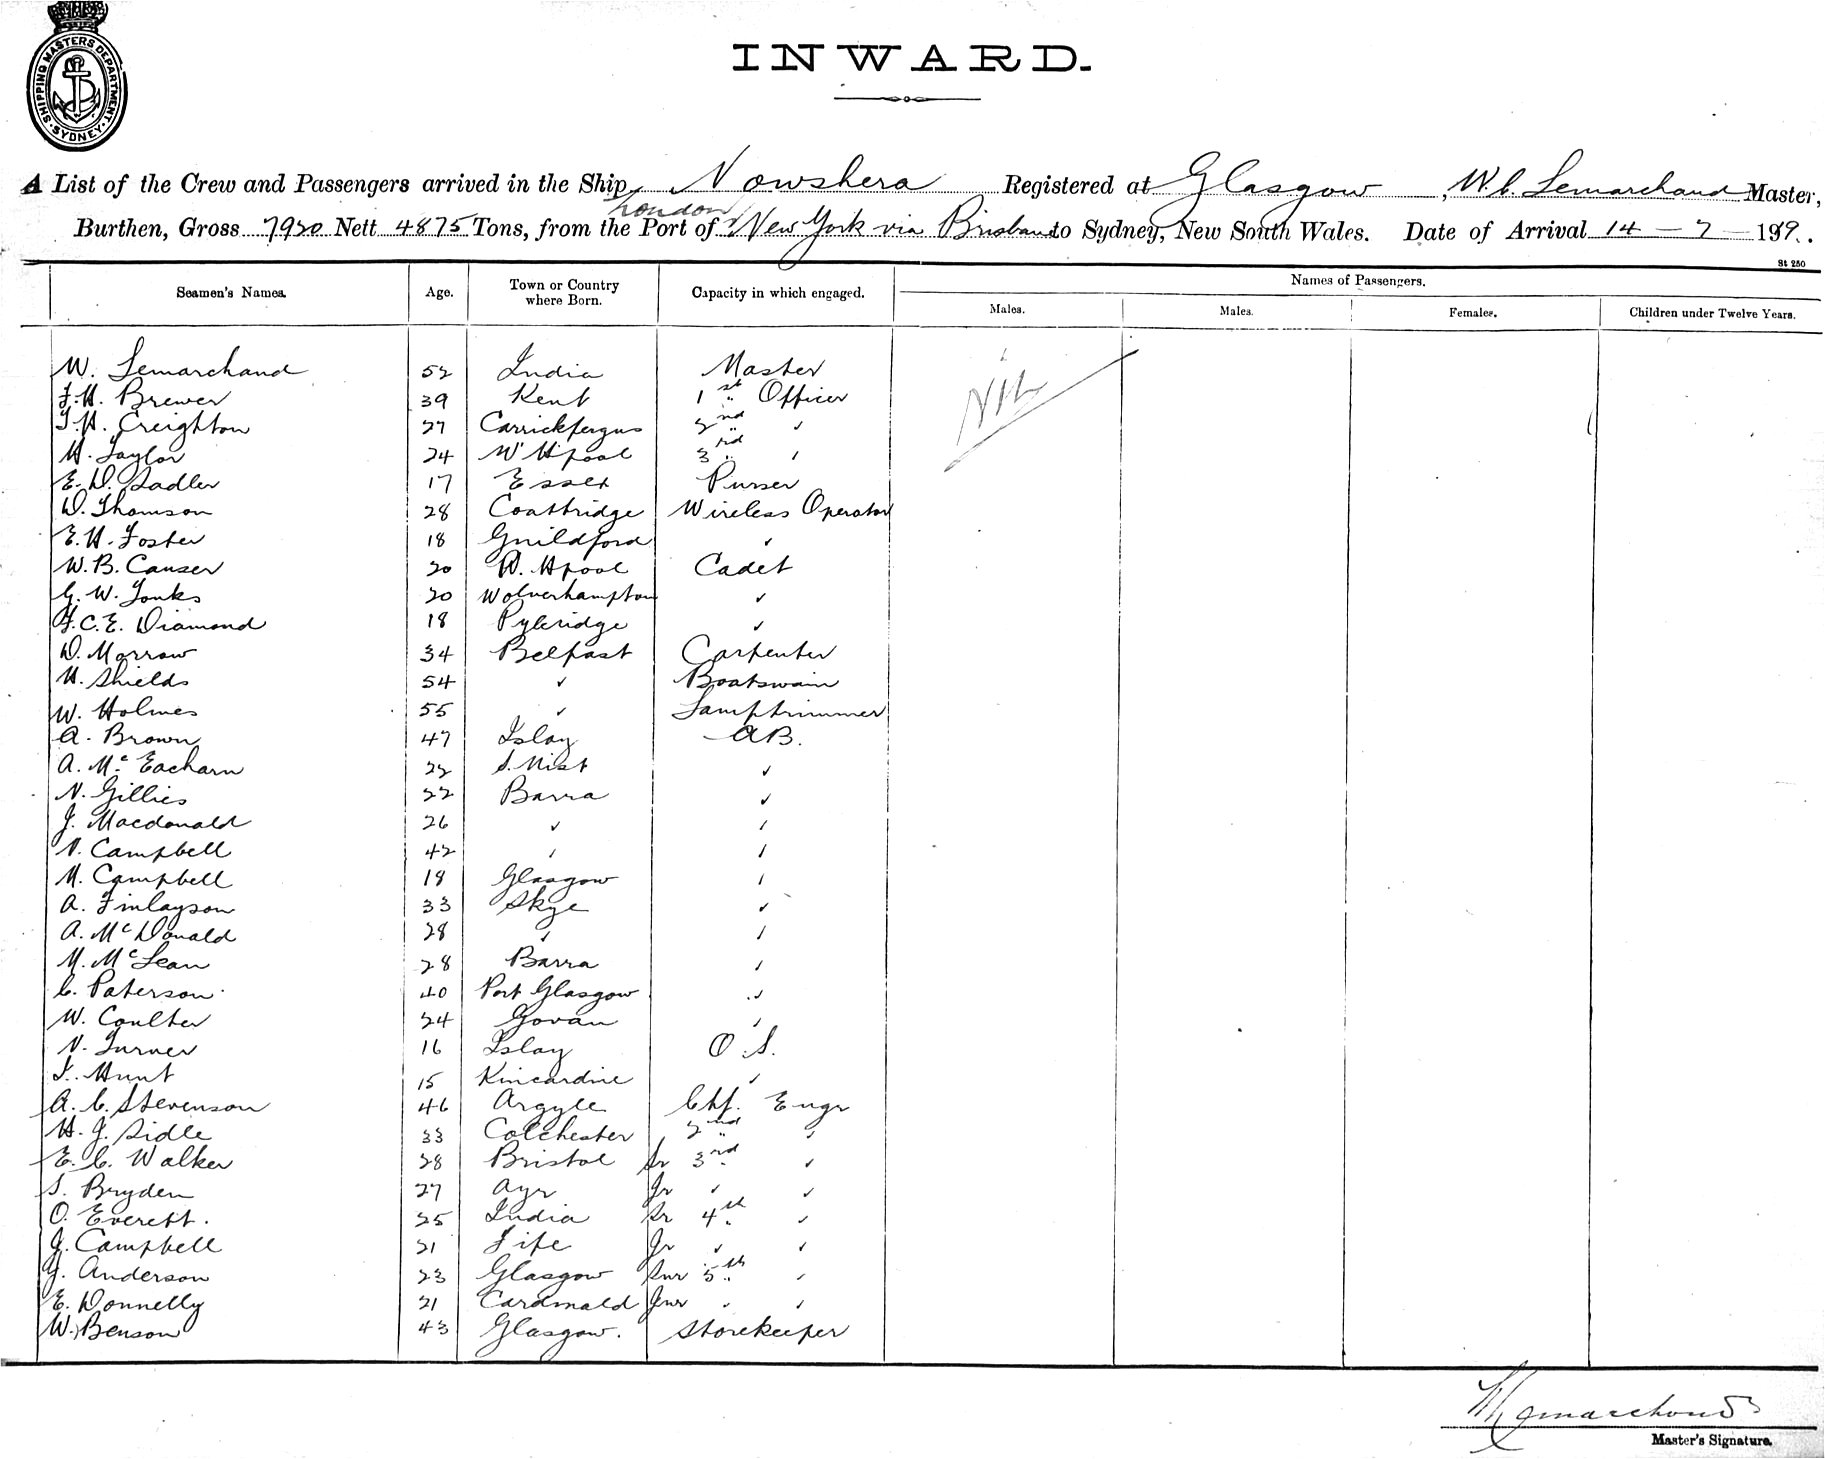 SHIPPING MASTERS DEPARTMENT. SYDNEY.
INWARD.
A List of the Crew and Passengers arrived in the Ship Nowshera Registered at Glasgow, W. C. Lemarchand Master,
London
Burthen, Gross 7920 Nett 4875 Tons, from the Port of New York via Brisbane to Sydney, New South Wales. Date of Arrival 14 - 7 - 19
St 250
Seamen's Names. Age. Town or Country where Born. Capacity in which engaged. Names of Passengers.
Males. Males. Females. Children under Twelve Years.
W. Lemarchand 52 India Master Nil
F. H. Brewer 39 Kent 1st " Officer
T. H. Creighton 27 Carrickfergus 2nd " ✓
H. Taylor 24 W Hpool 3rd " ✓
E. D. Sadler 17 Essex Purser
D. Thomson 28 Coatbridge Wireless Operator
E. H. Foster 18 Guildford ✓
W. B. Causer 20 W. Hpool Cadet
G. W. Tonks 20 Wolverhampton ✓
F. C. E. Diamond 18 Pyleridge ✓
D. Morrow 34 Belfast Carpenter
H. Shields 54 ✓ Boatswain
W. Holmes 55 ✓ Lamptrimmer
A. Brown 47 Islay AB.
A. McEacharn 22 S. Uist ✓
N. Gillies 22 Barra ✓
J. Macdonald 26 ✓ ✓
N. Campbell 42 ✓ ✓
M. Campbell 18 Glasgow ✓
A. Finlayson 33 Skye ✓
A. McDonald 28 ✓ ✓
M. McLean 28 Barra ✓
C. Paterson 40 Port Glasgow ✓
W. Coulter 24 Govan ✓
N. Turner 16 Islay O.S.
Hunt 15 Kincardine ✓
A. C. Stevenson 46 Argyle Chf. Engr
H. J. Sidle 33 Colchester 2nd " ✓
E. C. Walker 28 Bristol Sr 3rd ✓
S. Bryden 27 Ayr Jr ✓ ✓
O. Everett. 25 India Sr 4th ✓
J. Campbell 21 Fife Jr ✓ ✓
J. Anderson 23 Glasgow Snr 5th " ✓
E. Donnelly 21 Jnr ✓ ✓
W. Benson 43 Glasgow. Storekeeper
Lemarchand
Master's Signature.